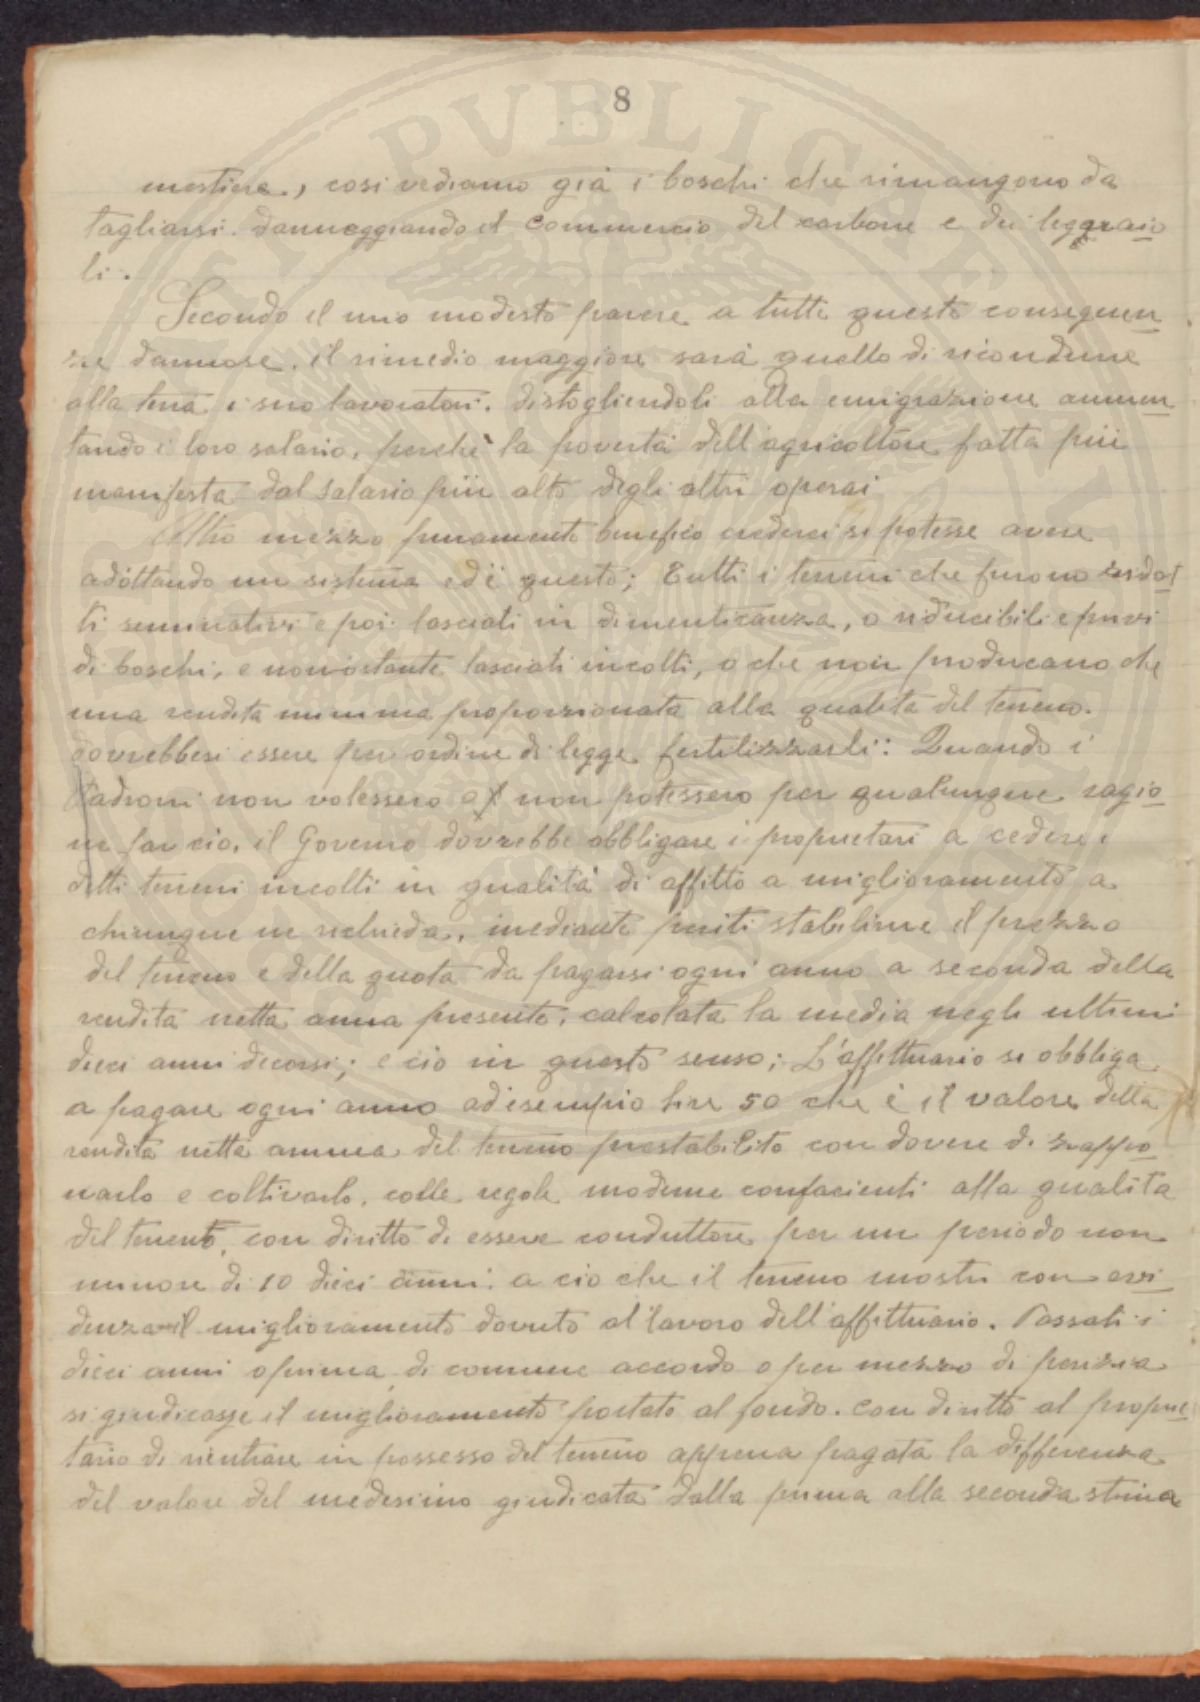 8
mestiere, cosi vediamo già i boschi che rimangono da
tagliarsi. danneggiando il commercio del carbone e dei leggnaio
li.
Secondo il mio modesto parere a tutte queste conseguen
ze dannose. il rimedio maggiore sarà quello di ricondurre
alla terra i suo lavoratori. distogliendoli alla emigrazione aumen
tando i loro salario, perchè la povertà dell'agricoltore fatta più
manifesta dal salario più alto degli altri operai
Altro mezzo puramente benefico crederei si potesse avere
adottando un sistema ed è questo; Tutti i terreni che furono redot
ti seminativi e poi lasciati in dimenticanza, o riducibili e privi
di boschi, e nonostante lasciati incolti, o che non producano che
una rendita minima proporzionata alla qualità del terreno.
dovrebbesi essere per ordine di legge fertilizzarli: Quando i
Padroni non volessero o non potessero per qualunque ragio
ne far ciò, il Governo dovrebbe obbligare i proprietari a cedere i
detti terreni incolti in qualità di affitto a miglioramento a
chiunque ne richieda, mediante periti stabilirne il prezzo
del terreno e della quota da pagarsi ogni anno a seconda della
rendita netta annua presente, calcolata la media negli ultimi
dieci anni decorsi; e ciò in questo senso; L'affittuario si obbliga
a pagare ogni anno ad esempio lire 50 che è il valore della
rendita netta annua del terreno prestabilito con dovere di zappo
narlo e coltivarlo, colle regole moderne confacienti alla qualità
del terreno, con diritto di essere conduttore per un periodo non
minore di 10 dieci anni. a ciò che il terreno mostri con evi
denza il miglioramento dovuto al lavoro dell'affittuario. Passati i
dieci anni o prima, di comune accordo o per mezzo di perizia
si giudicasse il miglioramento portato al fondo. con diritto al proprie
tario di rientrare in possesso del terreno appena pagata la differenza
del valore del medesimo giudicata dalla prima alla seconda stima